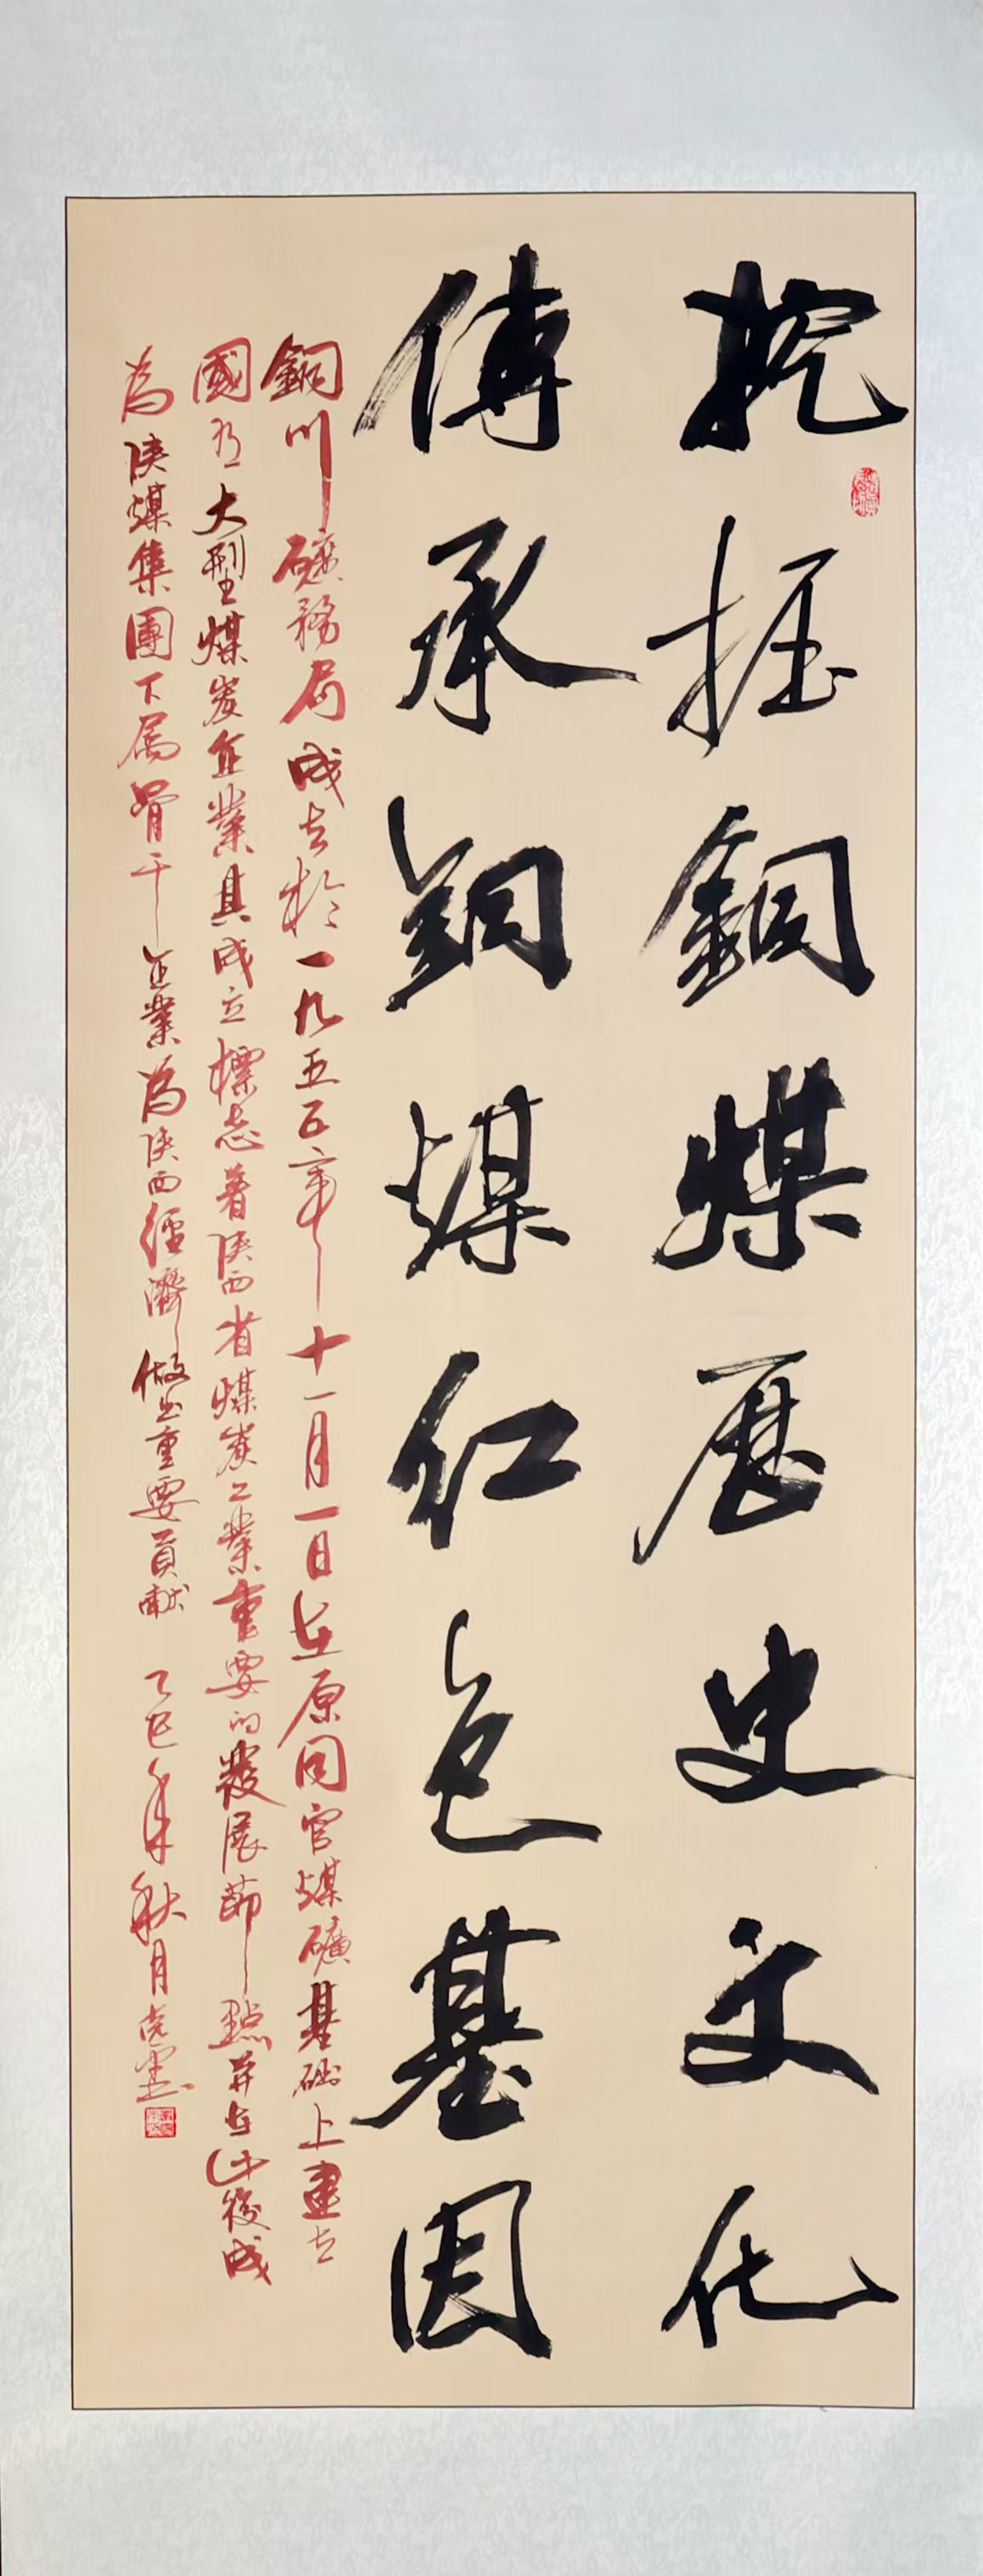 挖掘銅煤歷史文化
傳承銅煤红色基因
銅川礦務局成立於一九五五年十一月一日在原同官煤礦基础上建立
國有大型煤炭企業其成立標志着陕西省煤炭工業重要的發展節點并在此後成
為陕煤集團下属骨干企業為陕西經濟做出重要貢献 乙巳年秋月